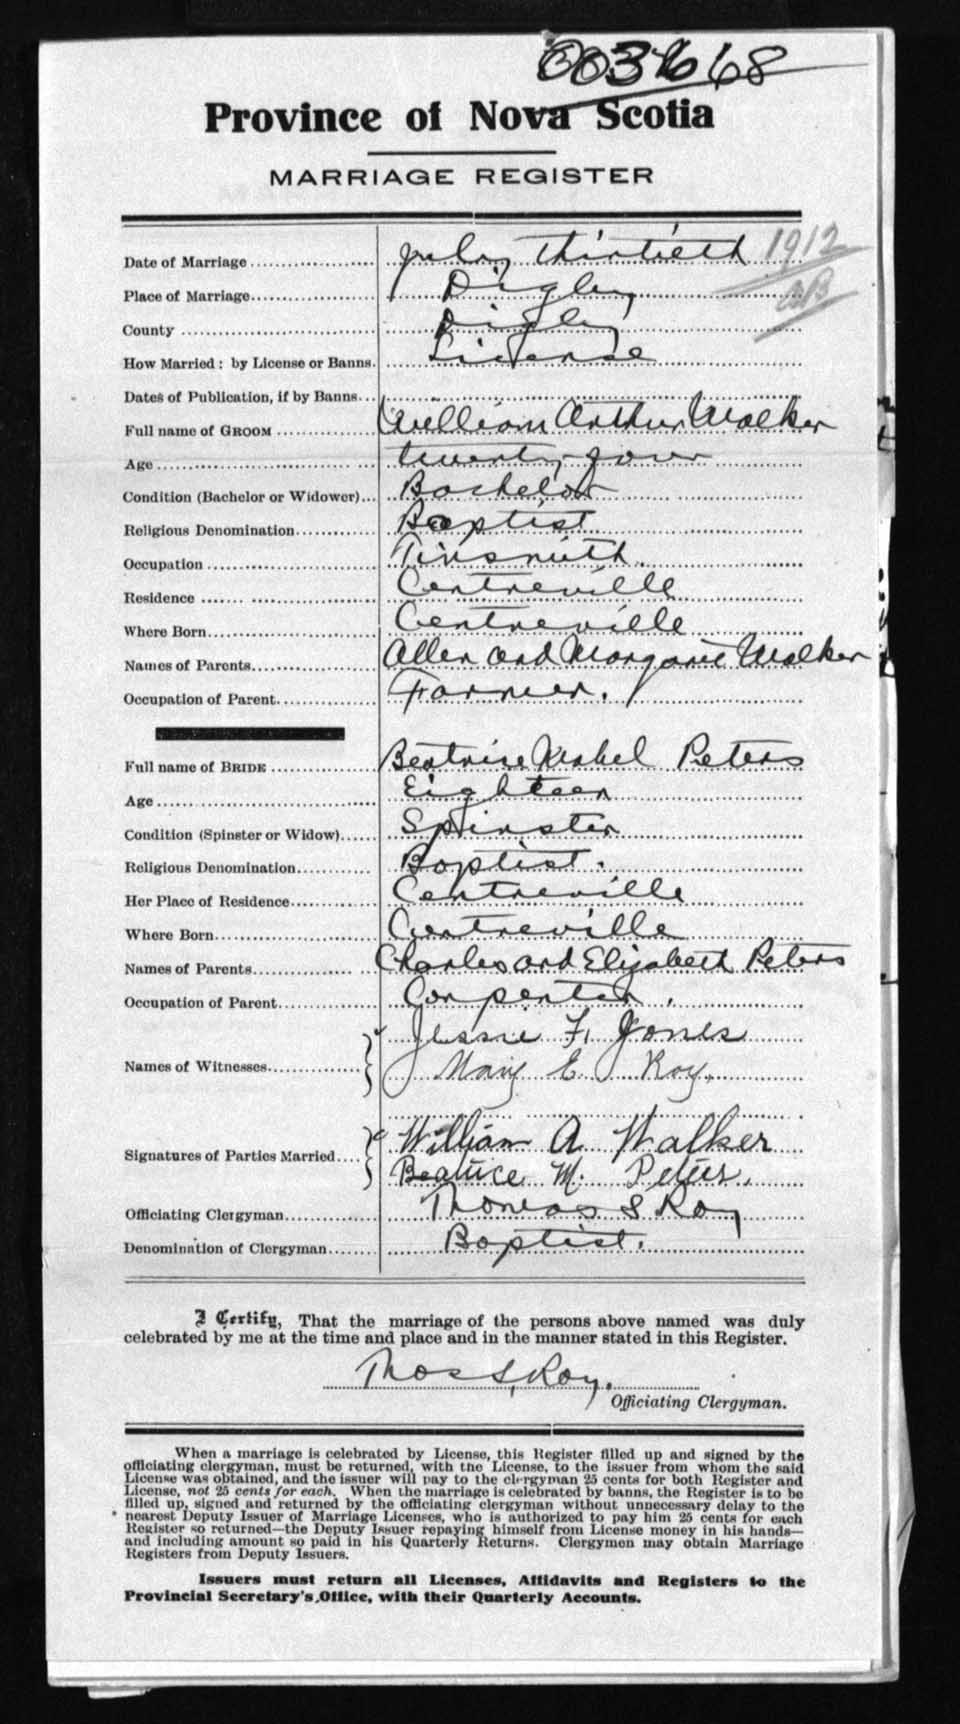 68
Province of Nova Scotia
MARRIAGE REGISTER
Date of Marriage July Thirtieth 1912
Place of Marriage Digby
County Digby
How Married: by License or Banns. License
Dates of Publication, if by Banns
Full name of GROOM William Arthur Walker
Age twenty-four
Condition (Bachelor or Widower) Bachelor
Religious Denomination Baptist
Occupation Tinsmith.
Residence Centreville
Where Born Centreville
Names of Parents Allen and Margaret Walker
Occupation of Parent Farmer.
Full name of BRIDE Beatrice Mabel Peters
Age Eighteen
Condition (Spinster or Widow) Spinster
Religious Denomination Baptist.
Her Place of Residence Centreville
Where Born Centreville
Names of Parents Charles and Elizabeth Peters
Occupation of Parent Carpenter.
Names of Witnesses Jessie F. Jones
Mary E Roy.
Signatures of Parties Married William A Walker
Beatrice M. Peters.
Officiating Clergyman Thomas S Roy
Denomination of Clergyman Baptist.
I Certify, That the marriage of the persons above named was duly
celebrated by me at the time and place and in the manner stated in this Register.
Thos S. Roy.
Officiating Clergyman.
When a marriage is celebrated by License, this Register filled up and signed by the
officiating clergyman, must be returned, with the License, to the issuer from whom the said
License was obtained, and the issuer will pay to the clergyman 25 cents for both Register and
License, not 25 cents for each. When the marriage is celebrated by banns, the Register is to be
filled up, signed and returned by the officiating clergyman without unnecessary delay to the
nearest Deputy Issuer of Marriage Licenses, who is authorized to pay him 25 cents for each
Register so returned—the Deputy Issuer repaying himself from License money in his hands—
and including amount so paid in his Quarterly Returns. Clergymen may obtain Marriage
Registers from Deputy Issuers.
Issuers must return all Licenses, Affidavits and Registers to the
Provincial Secretary's Office, with their Quarterly Accounts.